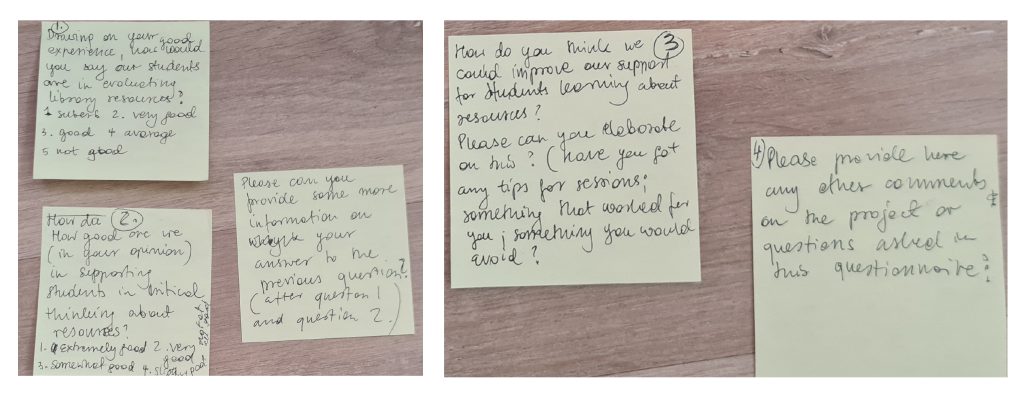 1.
Drawing on your good
experience, how would
you say our students
are in evaluating
library resources?
1 superb 2. very good
3. good 4 average
5 not good
How do 2.
How good are we
(in your opinion)
in supporting
students in critical
thinking about
resources?
1. Extremely good 2. very
good
3. Somewhat good 4.
Please can you
provide some more
information on
your
answer to the
previous question?
(after question 1
and question 2.)
How do you think we 3
could improve our support
for students learning about
resources?
Please can you elaborate
on this? (have you got
any tips for sessions;
something that worked for
you; something you would
avoid?
4) Please provide here
any other comments
on the project or
questions asked in
this questionnaire: